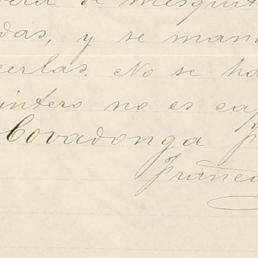 de mosquit
das, y se man
cerlas. No se ha
intero no es ca
Covadonga
Franc